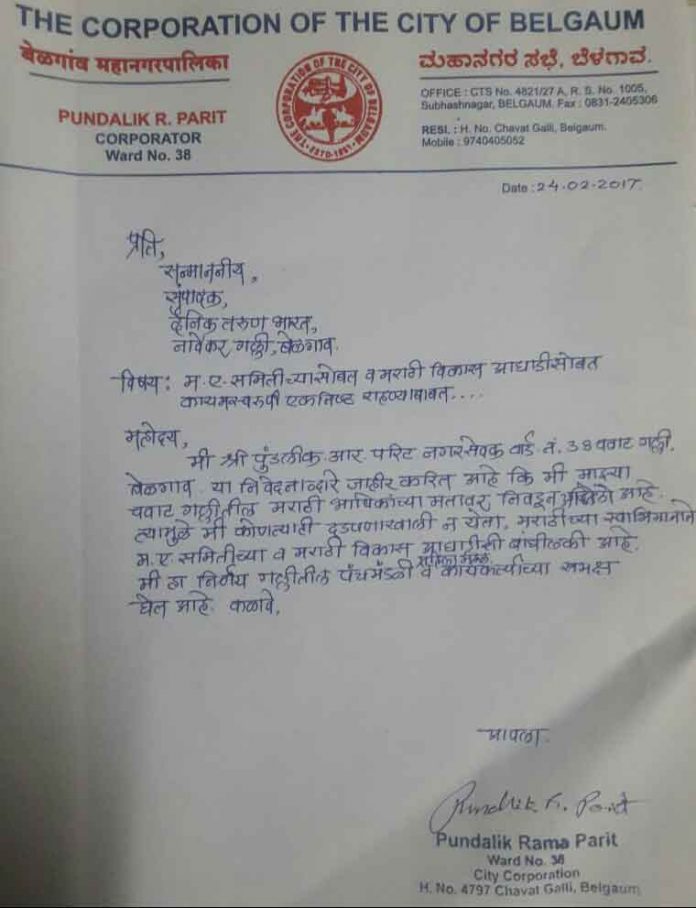 THE CORPORATION OF THE CITY OF BELGAUM
बेळगांव महानगरपालिका
ಮಹಾನಗರ ಸಭೆ, ಬೆಳಗಾವ.
PUNDALIK R. PARIT
CORPORATOR
Ward No. 38
THE CORPORATION OF THE CITY OF BELGAUM
OFFICE : CTS No. 4821/27 A, R. S. No. 1005,
Subhashnagar, BELGAUM. Fax : 0831-2405306
RESI. : H. No. Chavat Galli, Belgaum.
Mobile : 9740405052
Date : 24.02-2017
प्रति,
सन्माननीय,
संपादक,
दैनिक तरुण भारत,
नार्वेकर गल्ली, बेळगाव.
विषय : म.ए.समितीच्यासोबत व मराठी विकास आघाडीसोबत
कायमस्वरुपी एकनिष्ठ राहण्याबाबत....
महोदय,
मी श्री पुंडलीक.आर.परिट नगरसेवक वार्ड नं. 38 चवाट गल्ली.
बेळगाव. या निवेदनाव्दारे जाहीर करित आहे कि मी माझ्या
चवाट गल्लीतील मराठी भाषिकांच्या मतावर निवडून आहे.
त्यामुळे मी कोणत्याही दडपणाखाली न येता, मराठीच्या स्वाभिमानाने
म.ए.समितीच्या व मराठी विकास आघाडीसी बांधीलकी आहे.
मी हा निर्णय गल्लीतील पंचमंडळी व कार्यकर्त्यांच्या समक्ष
घेत आहे. कळावे.
आपला.
Pundlik R. Parit
Pundalik Rama Parit
Ward No. 38
City Corporation
H. No. 4797 Chavat Galli, Belgaum